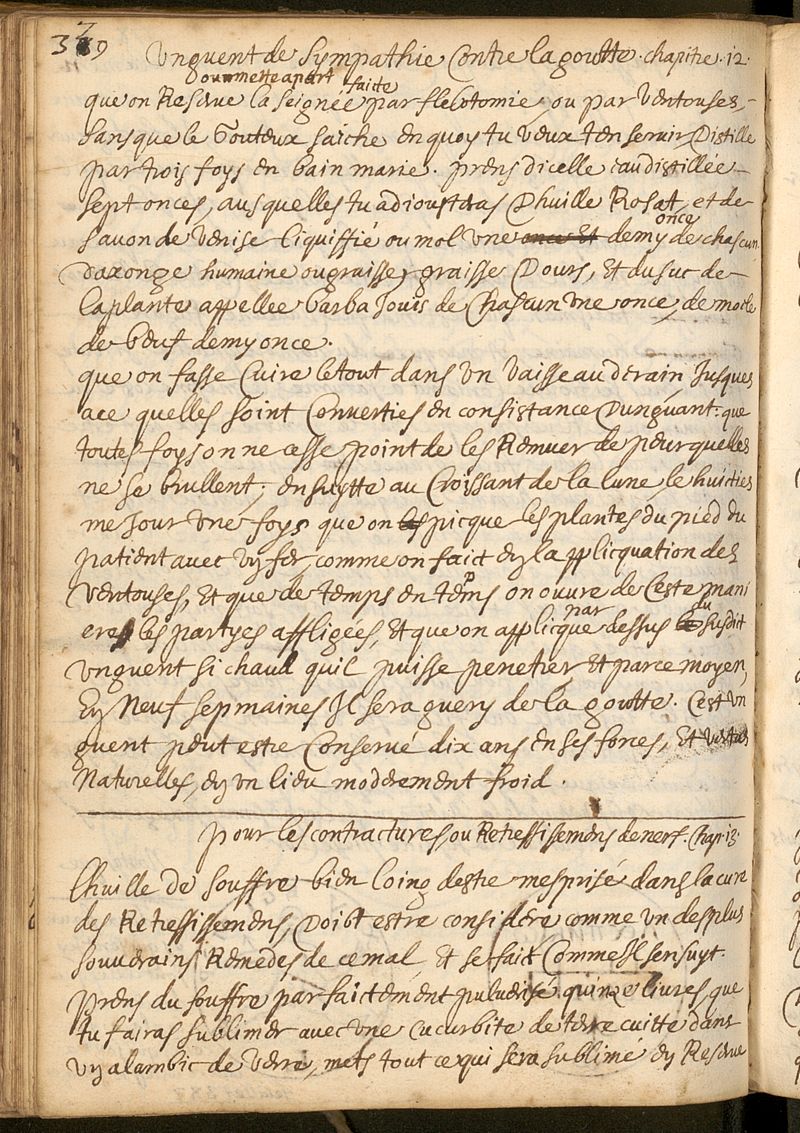 329
Unguent de Sympathie Contre la goutte. chapitre. 12.
ou mette apart faicte
que on Reserve la seignée par flebotomie, ou par ventouses,
sans que le Gouteux saiche en quoy tu veux t'en servir, Distille
par trois foys en bain marie. prens dicelle eau distillée
sept onces, ausquelles tu adjousteras Dhuille Rosat, et de
savon de Venise liquiffié ou mol une once Et demy once de chascun
daxonge humaine ou graisse, graisse Dours, Et du suc de
la plante appellee barba Jouis de Chascun une once, de moele
de beuf demy once.
que on fasse Cuire le tout dans un vaisseau derain Jusques
a ce quelles soint Converties en consistance Dunguant: que
toutes foys on ne cesse point de les Remuer de peur quelles
ne se brullent; ensuytte au Croissant de la lune, le huicties
me Jour une foys que on les picque les plantes du pied du
patient avec un fer, comme on faict en la applicquation des
ventouses, Et que de temps en temps on ouvre de Ceste mani
ere les partyes affligées, Et que on applicque par dessus le du susdit
unguent si chaud quil puisse penetrer, Et par ce moyen,
En Neuf sepmaines Il sera guery de la goutte. Cest un
guent peut estre Conservé dix ans en ses forces, Et vertus
Naturelles, en un lieu moderement froid.
pour les contractures, ou Retressissemens de nerf. Chap. 13.
Lhuille de souffre bien loing destre mesprisé dans la cure
des Retressissemens, Doibt estre considere comme un des plus
souverains Remedes de ce mal, Et se faict Comme Il sensuyt.
prens du souffre parfaictement pulverisé quinze livres, que
tu fairas sublimer avec une cucurbite de terre cuitte dans
un alambic de verre, mets tout ce qui sera sublimé en Reserve